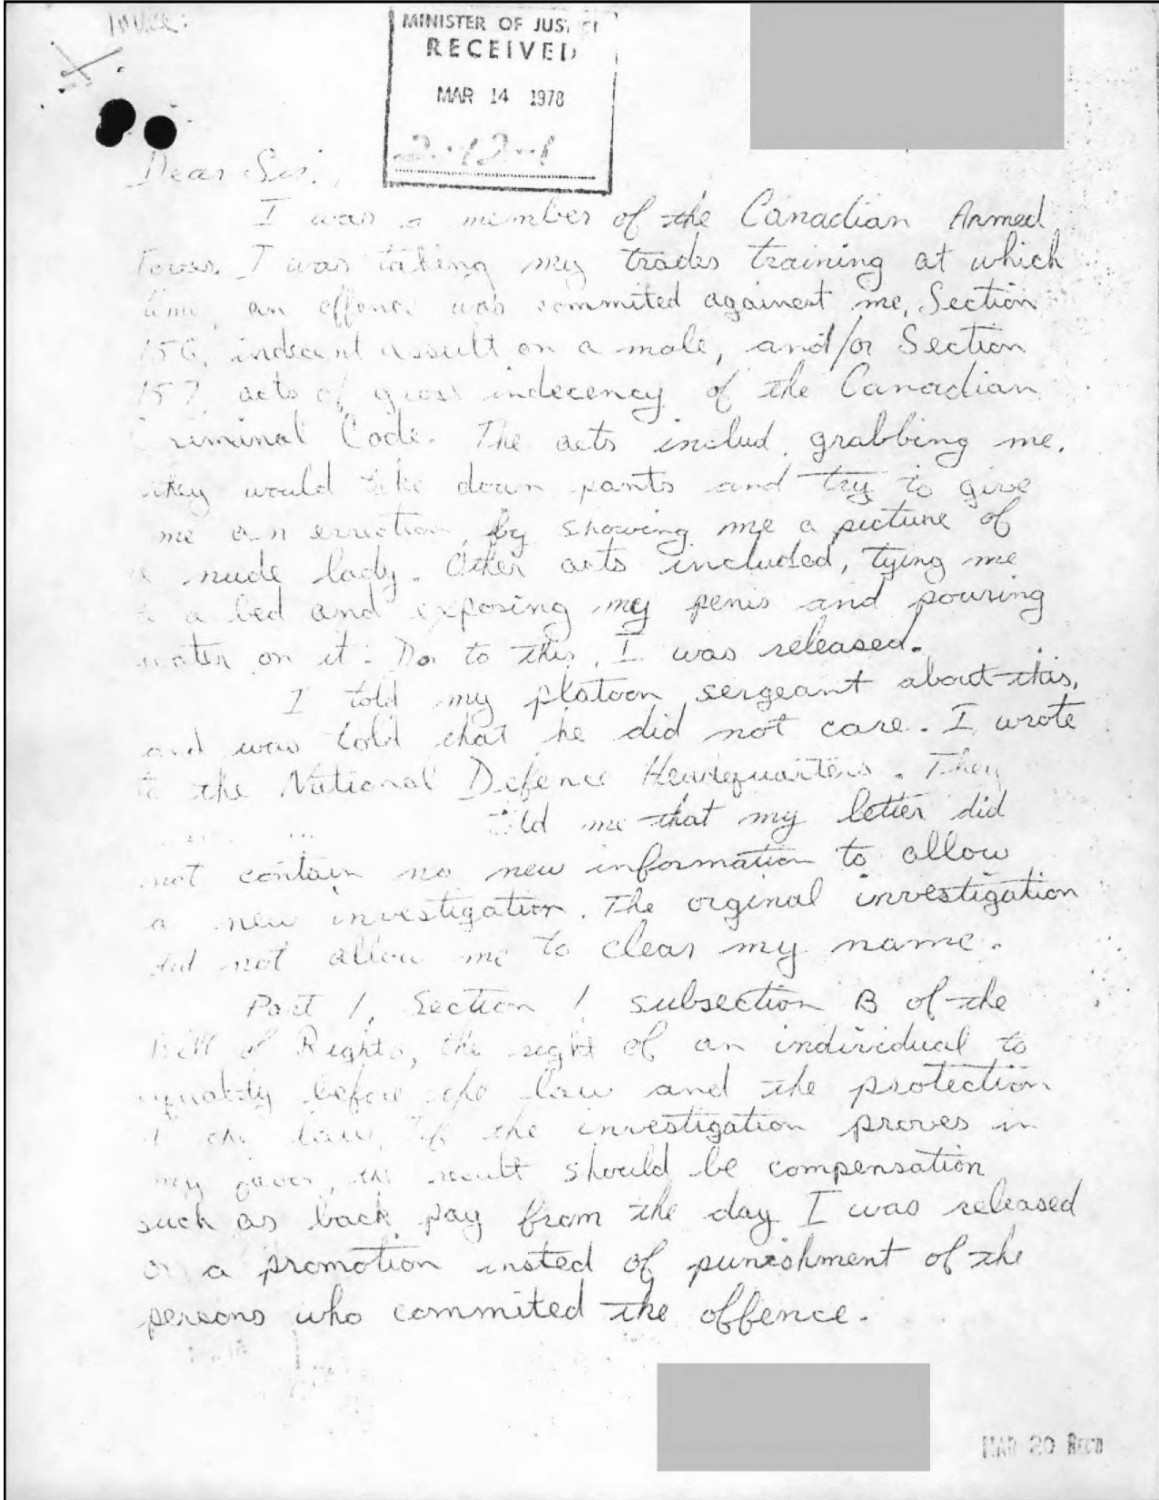 MINISTER OF JUS
RECEIVED
MAR 14 1978
2-12-1
Dear Sir:
I was a member of the Canadian Armed
Forces. I was taking my trades training at which
time, an offence was commited againest me, Section
156, indecent assult on a male, and/or Section
157, acts of gross indecency of the Canadian
Criminal Code. The acts includ, grabbing me,
they would take down pants and try to give
me an errection, by showing me a picture of
a nude lady. Other acts included, tying me
to a bed and exposing my penis and pouring
water on it. Do to this, I was released.
I told my platoon sergeant about this,
and was told that he did not care. I wrote
to the National Defence Headquarters. They
told me that my letter did
not contain no new information to allow
a new investigation. The orginal investigation
did not allow me to clear my name.
Part 1, Section 1 subsection B of the
Bill of Rights, the right of an individual to
equality before the law and the protection
of the law, If the investigation proves in
my favor, the result should be compensation
such as back pay from the day I was released
or a promotion insted of punishment of the
persons who commited the offence.
MAR 20 RECD